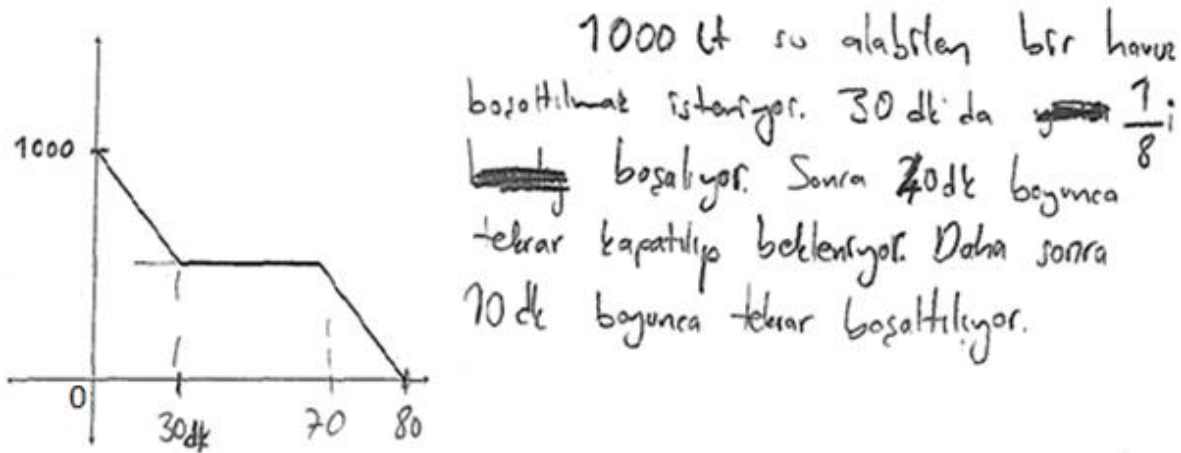 1000 lt su alabilen bir havuz
boşaltılmak isteniyor. 30 dk da 1/8 i
boşalıyor. Sonra 40dk boyunca
tekrar kapatılıp bekleniyor. Daha sonra
10 dk boyunca tekrar boşaltılıyor.
1000
0
30dk
70
80